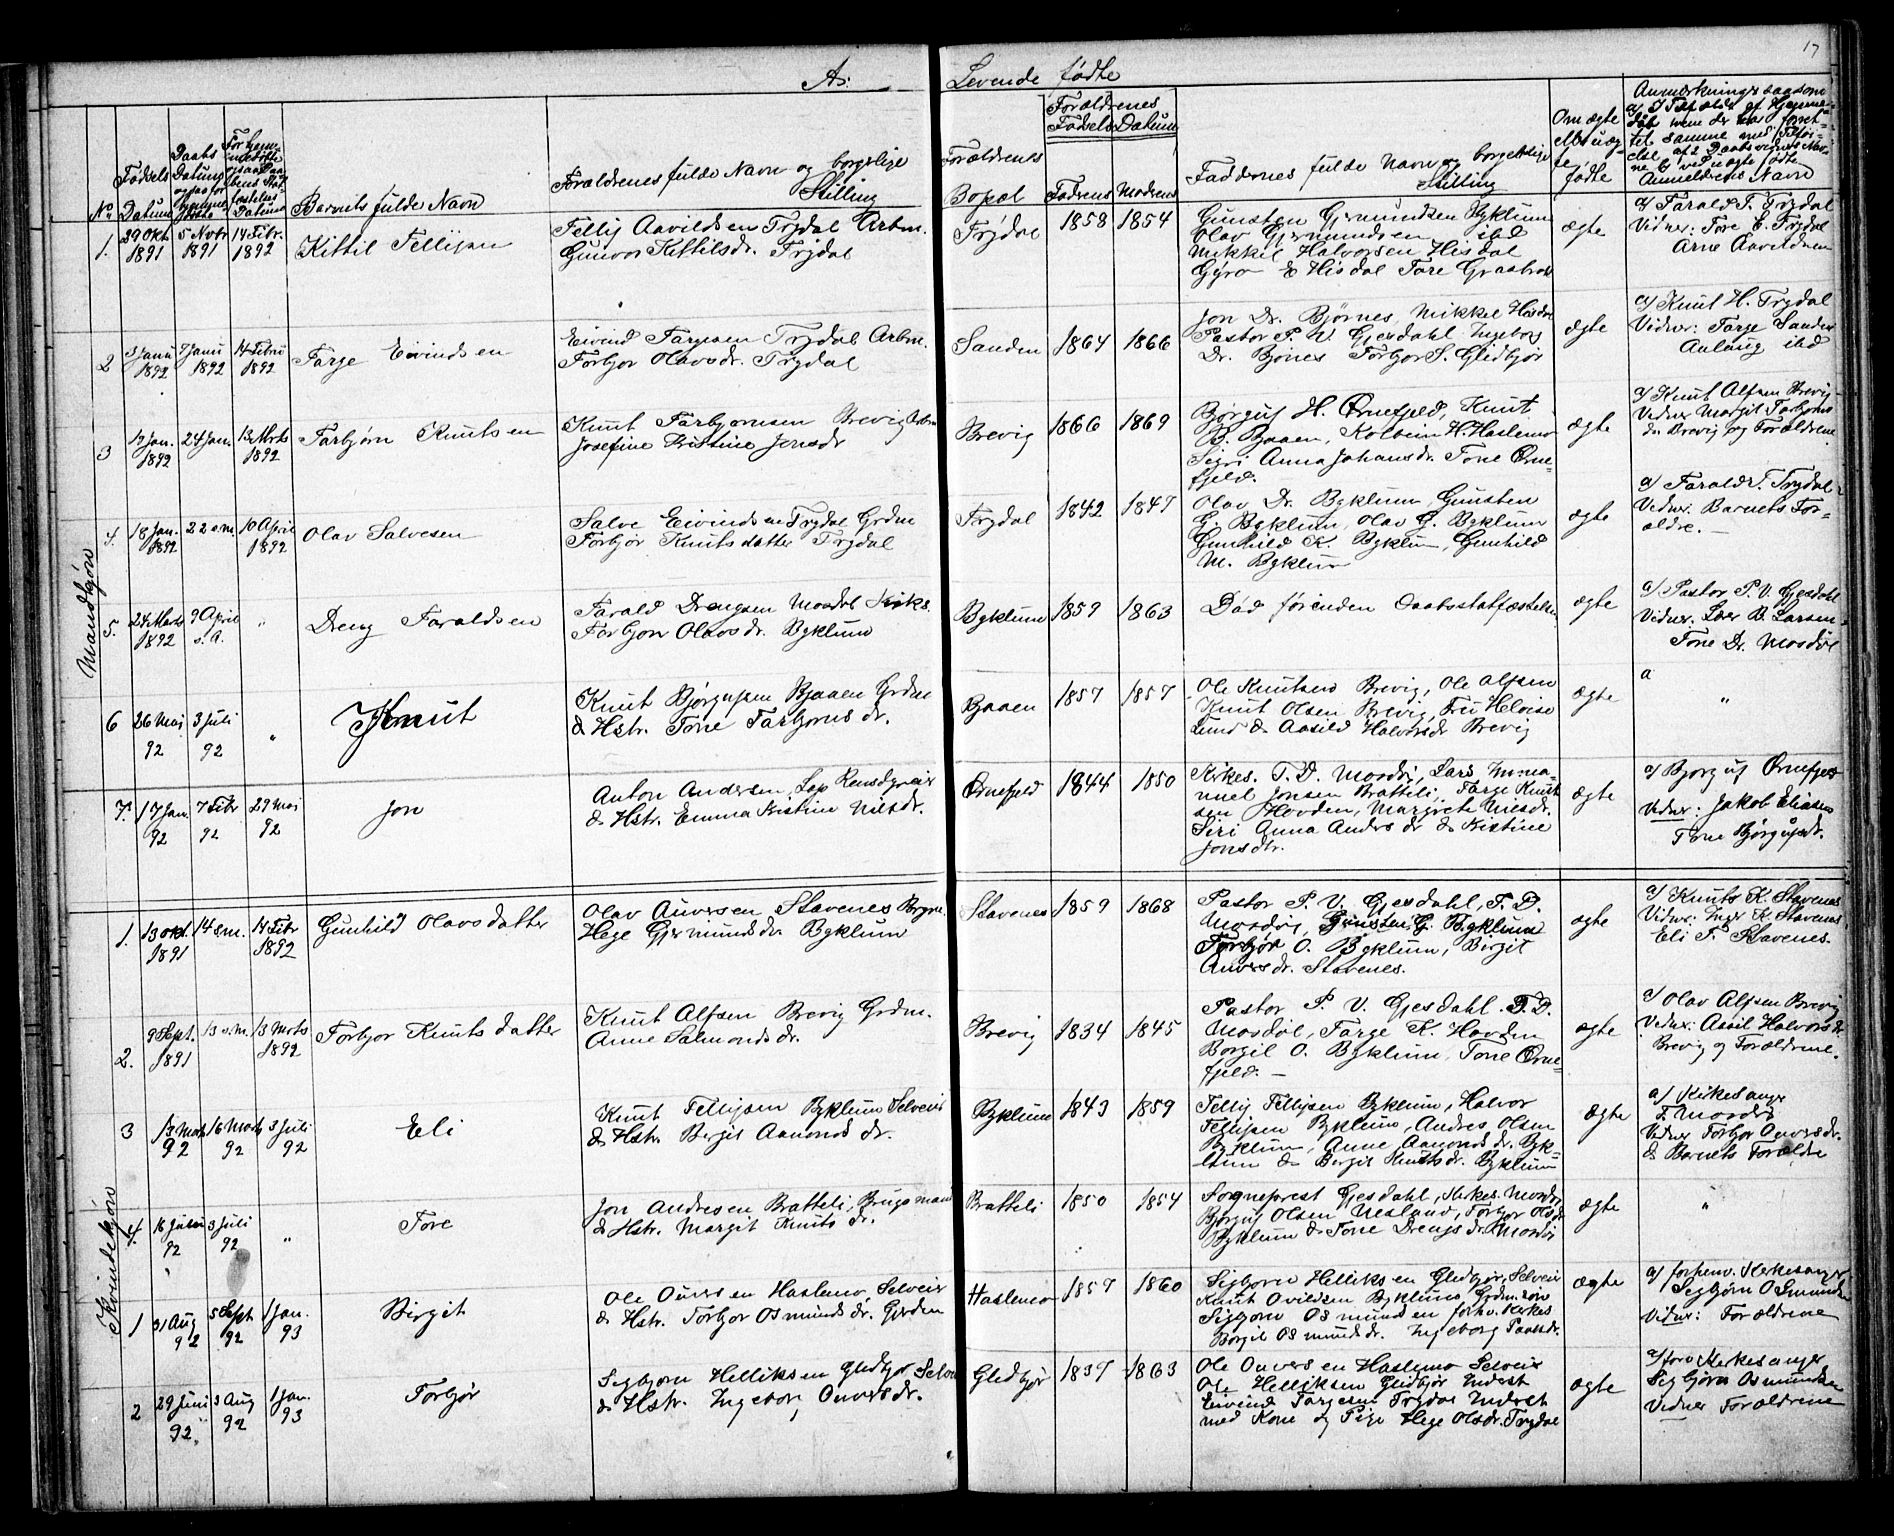 17
A: Levende fødte
No
Fødsels Datum
Daabs Datum
For hjemmedøbte
Datum
Barnets fulde Navn
Forældrenes fulde Navn og borgerlige Stilling
Forældrenes Bopæl
Forældrenes Fødsels Datum
Fadrens Modrens
Faddernes fulde Navn og borgerlige Stilling
Om ægte eller uægte fødte
Anmelderens Navn
Mandkjøn
1. 29 Okt 1891 5 Novbr 1891 14 Febr. 1892 Kittil Tellijsen
Tellij Aavildsen Trydal Arbm.
Gunvor Kittilsdr. Trydal
Trydal 1858 1854
Gunsten Gjermundsen Byklum
Olav Gjermundsen ibd
Mikkil Halvorsen Hisdal
Gyro E Hisdal Tore
ægte
a/ Tarald T. Trydal
Vidner: Tore E. Trydal
Arne
2 3 Janu 1892 7 Janu 1892 14 Febru 1892 Targe Eivindsen
Eivind Targesen Trydal Arbm.
Torbjor Olavsdr. Trydal
Sanden 1864 1866
Jon Dr. Bjørnes, Mikkel Hisdal
Pastor P. V. Gjesdahl Ingeborg
Dr. Bjønes Torbjor S. Glidbjør
ægte
a/ Knut H. Trydal
Vidner: Targe Sanden
Aslaug ibd
3 Jan. 1892 24 Jan. 13 Marts 1892 Tarbjørn Knutsen
Knut Tarbjornsen Brevig
Josefine Kristine Jensdr
Brevig 1866 1869
Bjørguf H. Ørnefjeld, Knut
B. Bjaaen, Kolbein H. Haslemo
Sigri Anna Johansdr. Tone Ørne-
fjeld.
ægte
a/ Knut Alfsen Brevig
Vidner Margit Tarbjorns
dr. Brevig og Forældrene
4. 18 Jan. 1892 22 s.m. 10 April 1892 Olav Salvesen
Salve Eivindsen Trydal Grdm
Torbjør Knutsdatter Trydal
Trydal 1842 1847
Olav Dr. Byklum, Gunsten
G. Byklum, Olav G. Byklum
Gunhild K. Byklum, Gunhild
M. Byklum
ægte
a/ Tarald T. Trydal
Vidner: Barnets For-
ældre.
5. 24 Marts 1892 9 April s.A. " Dreng Taraldsen
Tarald Drengsen Mosdøl Kirks.
Torbjor Olavsdr. Byklum
Byklum 1859 1863
Død førenden Daabsstatfæstelsen
ægte
a/ Pastor P. V. Gjesdahl
Vidner: Lær B. Larsen
Tone Dr. Mosdøl
6 26 Mai 92 3 Juli 92 " Knut
Knut Bjørgufsen Bjaaen Grdm
& Hstr. Tone Tarbjørns dr.
Bjaaen 1857 1857
Ole Knutsen Brevig, Ole Alfsen
Knut Olsen Brevig, Fru Heloise
Lund & Aasild Halvorsdr Brevig
ægte
a "
7. 17 Jan. 92 7 Febr 92 29 Mai 92 Jon
Anton Andersen, Lap Rensdyreier
& Hstr. Emma Kristine Nilsdr.
Ørnefjeld 1844 1850
Kirkes. T. D. Mosdøl, Lars Imma-
nuel Jonsen Bratteli, Targe Knut
sen Hovden, Margrete Nilsdr.
Siri Anna Anders dr & Kristine
Jonsdtr.
ægte
a/ Bjorguf Ørnefjeld
Vidner: Jakob Eliasen
Tone Bjørgufsdr.
Kvindekjøn
1. 13 Okt. 1891 14 s.m. 14 Febr 1892 Gunhild Olavsdatter
Olav Anversen Stavenes
Hege Gjermundsdr Byklum
Stavenes 1859 1868
Pastor P. V. Gjesdahl, T. D.
Mosdøl, Gunsten G. Byklum
Torbjør O. Byklum, Birgit
Anversdr. Stavenes.
ægte
a/ Knuts K. Stavenes
Vidner: Inger K. Stavenes
Eli T. Stavenes.
2. 9 Sept. 1891 13 s.m. 13 Marts 1892 Torbjor Knutsdatter
Knut Alfsen Brevig Grdm.
Anne Salmonds dr.
Brevig 1834 1845
Pastor P. V. Gjesdahl. T. D.
Mosdøl, Targe K. Hovden
Borgil O. Byklum, Tone Ørne-
fjeld. —
ægte
a/ Olav Alfsen Brevig
Vidner: Assil Halvors dr
Brevig og Forældrene.
3 13 Mars 92 16 Marts 92 3 Juli 92 Eli
Knut Tellijsen Byklum Selveier
& Hstr. Birgit Aamonds dr.
Byklum 1843 1859
Tellij Tellijsen Byklum, Halvor
Tellijsen Byklum, Andres Olsen
Byklum, Anne Aamonds dr. Byk-
lum & Birgit Knutsdr. Byklum
ægte
a/ Kirkesanger
T. Mosdøl
Vidner Torbjor Anversdr.
& Barnets Forældre
4. 16 Juni 92 3 Juli 92 " Tore
Jon Andresen Bratteli, Brugsmand
& Hstr. Margit Knuts dr.
Bratteli 1850 1854
Sogneprest Gjesdahl, Kirkes. Mosdøl
Bjørguf Olsen Nesland, Torbjor Olsdr
Byklum & Tone Drengs dr. Mosdøl
ægte
"
1 31 Aug 92 5 Sept 92 1 Jan. 93 Birgit
Ole Onversen Haslemo, Selveier
& Hstr. Torbjor Osmunds dr.
Haslemo 1857 1860
Sigbjorn Helliksen Glidbjør, Selveier
Knut Ovildsen Byklum, Grdm.søn
Sigbjorn Osmundsen forhv. Kirkes
Borgil Osmunds dr. Ingeborg
ægte
a/ forhenv. Kirkesanger
Sigbjørn Osmundsen
Vidner: Forældrene
2 29 Juni 92 3 Aug 92 1 Jan. 93 Torbjør
Sigbjorn Helliksen Glidbjør, Selv
& Hstr. Ingeborg Onversdr.
Glidbjør 1837 1863
Ole Onversen Haslemo Selveir
Ole Helliksen Glidbjør Inderst
Eivind Targesen Trydal Inderst
med Kone og Pige Hege Olsdr. Trydal
ægte
a/ forv Kirkesanger
Sigbjørn Osmundsen
Vidner Forældrene